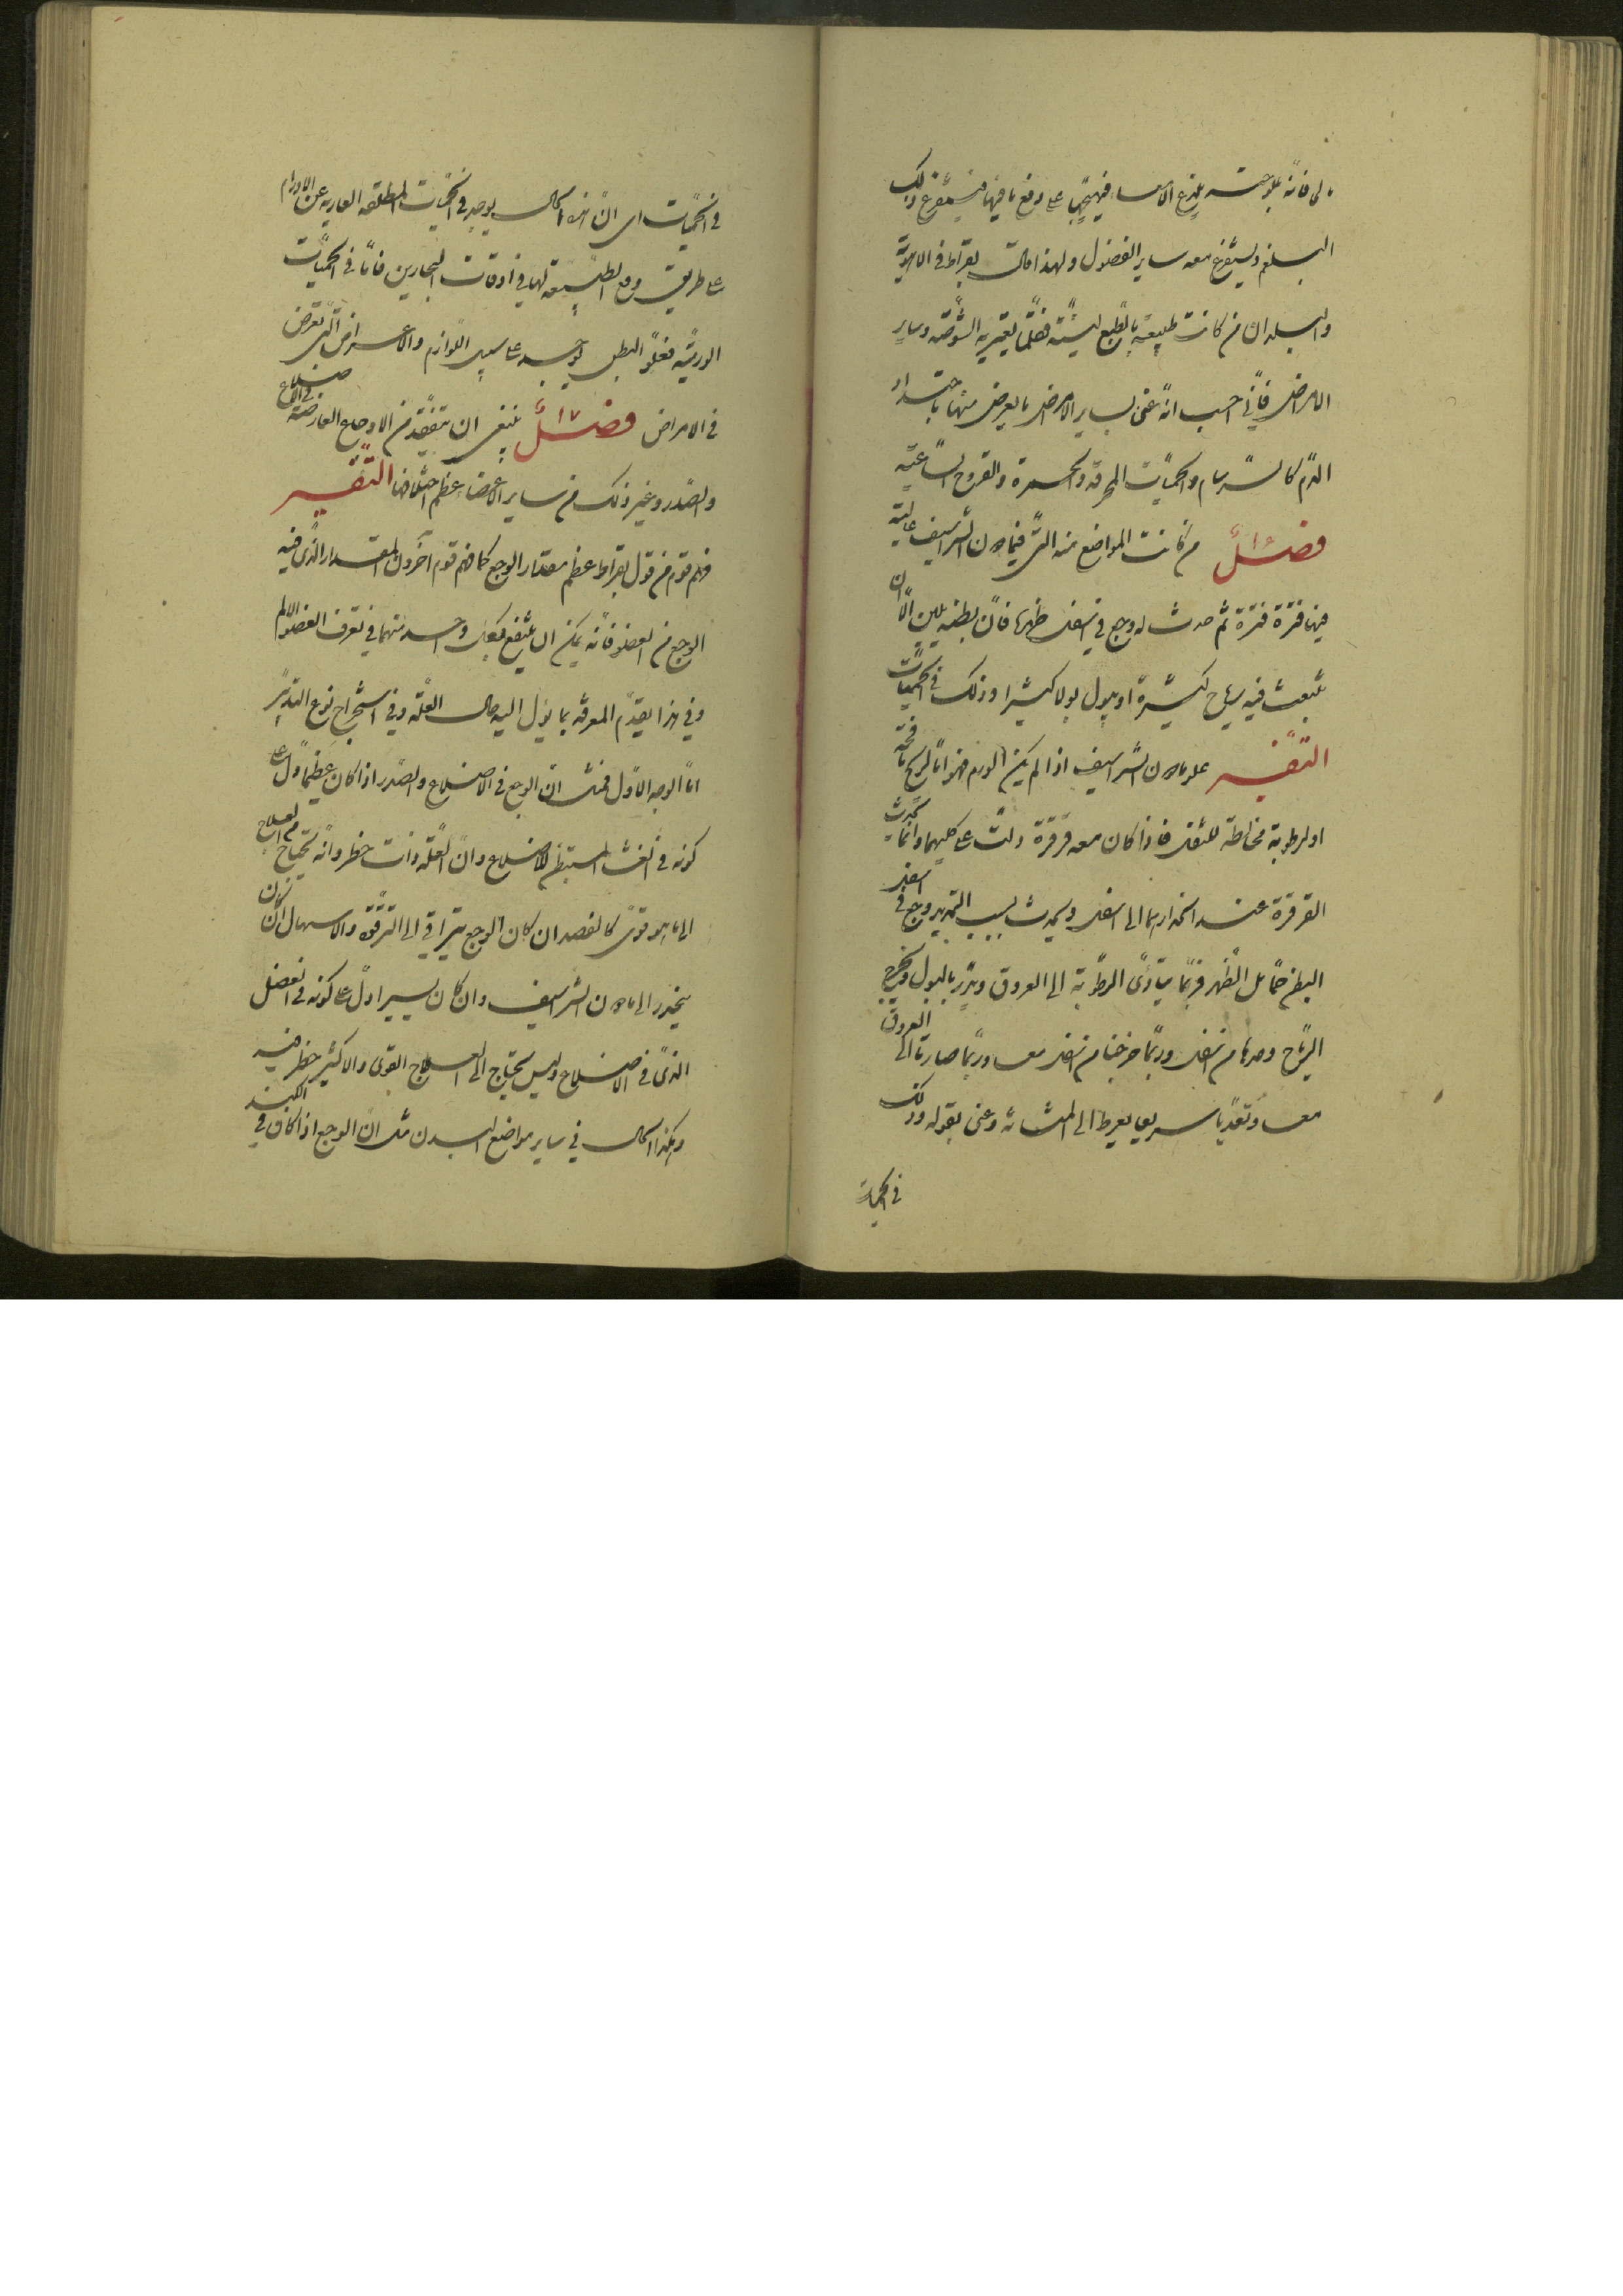 مالى فانه بملوحته يلذع الامعاء فيهيجها على دفع ما فيها فيستفرغ ذلك
البلغم ويستفرغ معه ساير الفضول ولهذا قال بقراط فى الاهوية
والبلدان من كانت طبيعته بالطبع لينة فقلما يعتريه الشوصة وساير
الامراض فانى احسب انه عنى بساير الامراض ما يعرض منها باحتداد
الدم كالسرسام والحميات المحرقة والحمرة والقروح الساعية
فصل من كانت المواضع منه التى فيما دون الشراسيف عالية
فيها قرقرة ثم حدث له وجع فى اسفل ظهره فان بطنه يلين الا ان
تنبعث منه رياح كثيرة او يبول بولا كثيرا وذلك فى الحميات
التفسير علو ما دون الشراسيف اذا لم يكن لورم فهو اما لريح نافخة
او لرطوبة مخالطة للثفل فاذا كان معه قرقرة دلت على كليهما وانما تحدث
القرقرة عند انحدارهما الى اسفل ويحدث بسبب التمديد وجع فى اسفل
البطن مما يلى الظهر فربما يتادى الرطوبة الى العروق وتدر بالبول وتخرج
الرياح وحدها من اسفل وربما خرجتا من اسفل معا وربما صارتا الى العروق
معا وتعديا سريعا الى المثانة وعنى بقوله وذلك
فى الحميات
فى الحميات اى ان هذا الحال يوجد فى الحميات المطلقه العاريه عن الاورام
على طريق دفع الطبيعة لها فى اوقات البحارين فاما فى الحميات
الورمية فعلو البطن يوجد على سبيل اللوازم والاعراض التى تعرض
فى الامراض فصل ١٧ ينبغى ان تتفقد من الاوجاع العارضة فى الاضلاع
والصدر وغير ذلك من ساير الاعضاء عظم اختلافها التفسير
فهم قوم من قول بقراط عظم مقدار الوجع كما فهم قوم آخرون المقدار الذى فيه
الوجع من العضو فانه يمكن ان ينتفع بكل واحد منهما فى تعرف العضو الالم
وفى هذا يقدم المعرفة بما يؤل اليه حال العلة وفى استخراج نوع التدبير
اما الوجه الاول فمثل ان الوجع فى الاضلاع والصدر اذا كان عظيما دل على
كونه فى الغشاء المستبطن للاضلاع وان العلة ذات خطر وانه يحتاج من العلاج
الى ما هو قوى كالفصد ان كان الوجع يتراقى الى الترقوة والاسهال ان كان
ينحدر الى ما دون الشراسيف وان كان يسيرا دل على كونه فى العضل
الذى فى الاضلاع وليس يحتاج الى العلاج القوى والا كثير خطر فيه
وهكذا الحال فى ساير مواضع البدن مثل ان الوجع اذا كان فى الكبد